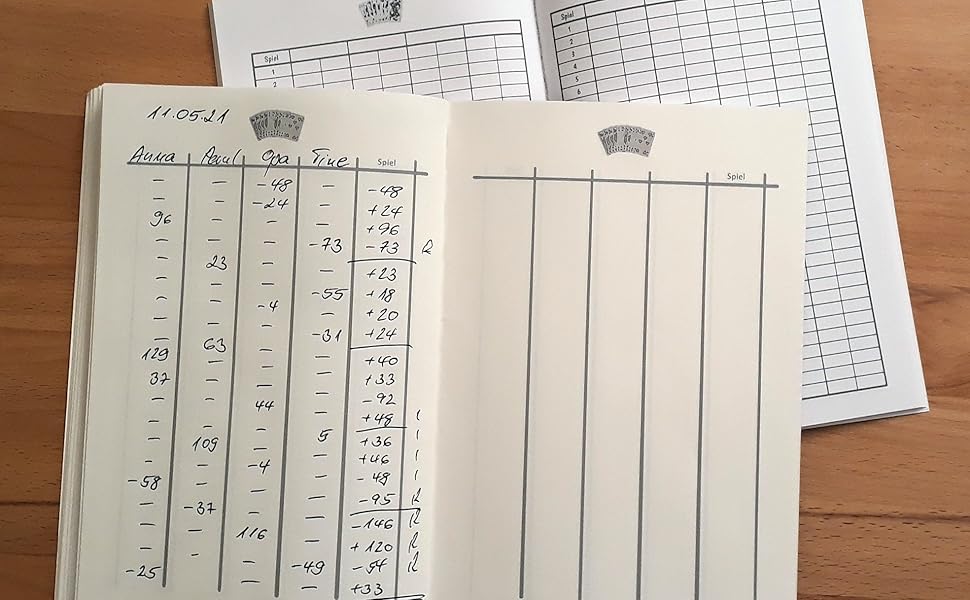 Spiel
1
2
Spiel
1
2
3
4
5
6
11.05.21
Anna Paul Opa Tine Spiel
– – -48 – -48
– – -24 – +24
96 – – – +96
– – – -73 -73 R
– 23 – – +23
– – – -55 +18
– – -4 – +20
– – – -31 +24
– 63 – – +40
129 – – – +33
37 – – – -92
– – 44 – +48
– – – 5 +36
– 109 – – +46
– – -4 – -48
-58 – – – -95 R
– -37 – – -146 R
– – 116 – +120 R
– – – -49 -54 R
-25 – – – +33
Spiel